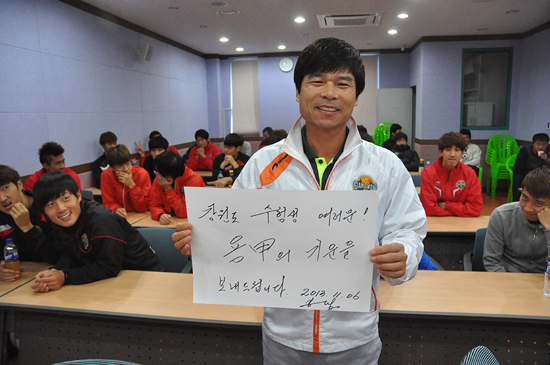 강원도 수험생 여러분!
용甲의 기운을
보내드립니다.
2013. 11. 06